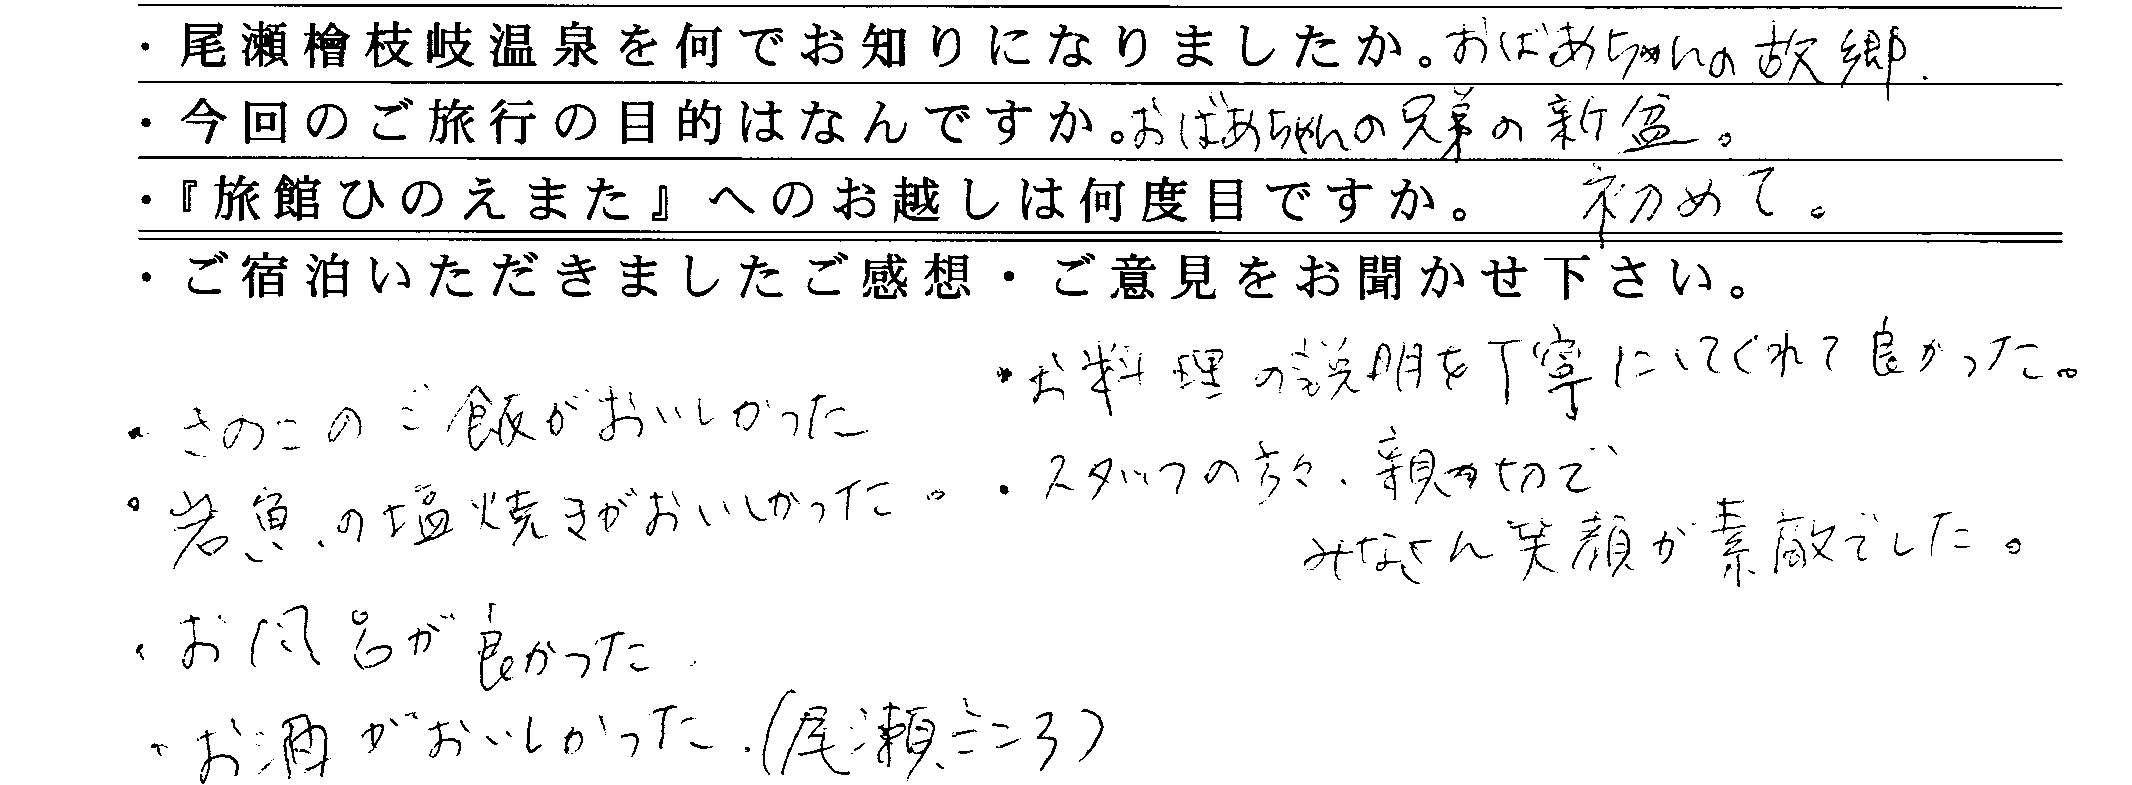 ・尾瀬檜枝岐温泉を何でお知りになりましたか。おばあちゃんの故郷.
・今回のご旅行の目的はなんですか。おばあちゃんの兄弟の新盆。
・『旅館ひのえまた』へのお越しは何度目ですか。 初めて。
・ご宿泊いただきましたご感想・ご意見をお聞かせ下さい。
・きのこのご飯がおいしかった
・岩魚の塩焼きがおいしかった。
・お風呂が良かった.
・お酒がおいしかった.(尾瀬ごころ)
・お料理の説明を丁寧にしてくれて良かった。
・スタッフの方々、親切で
みなさん笑顔が素敵でした。